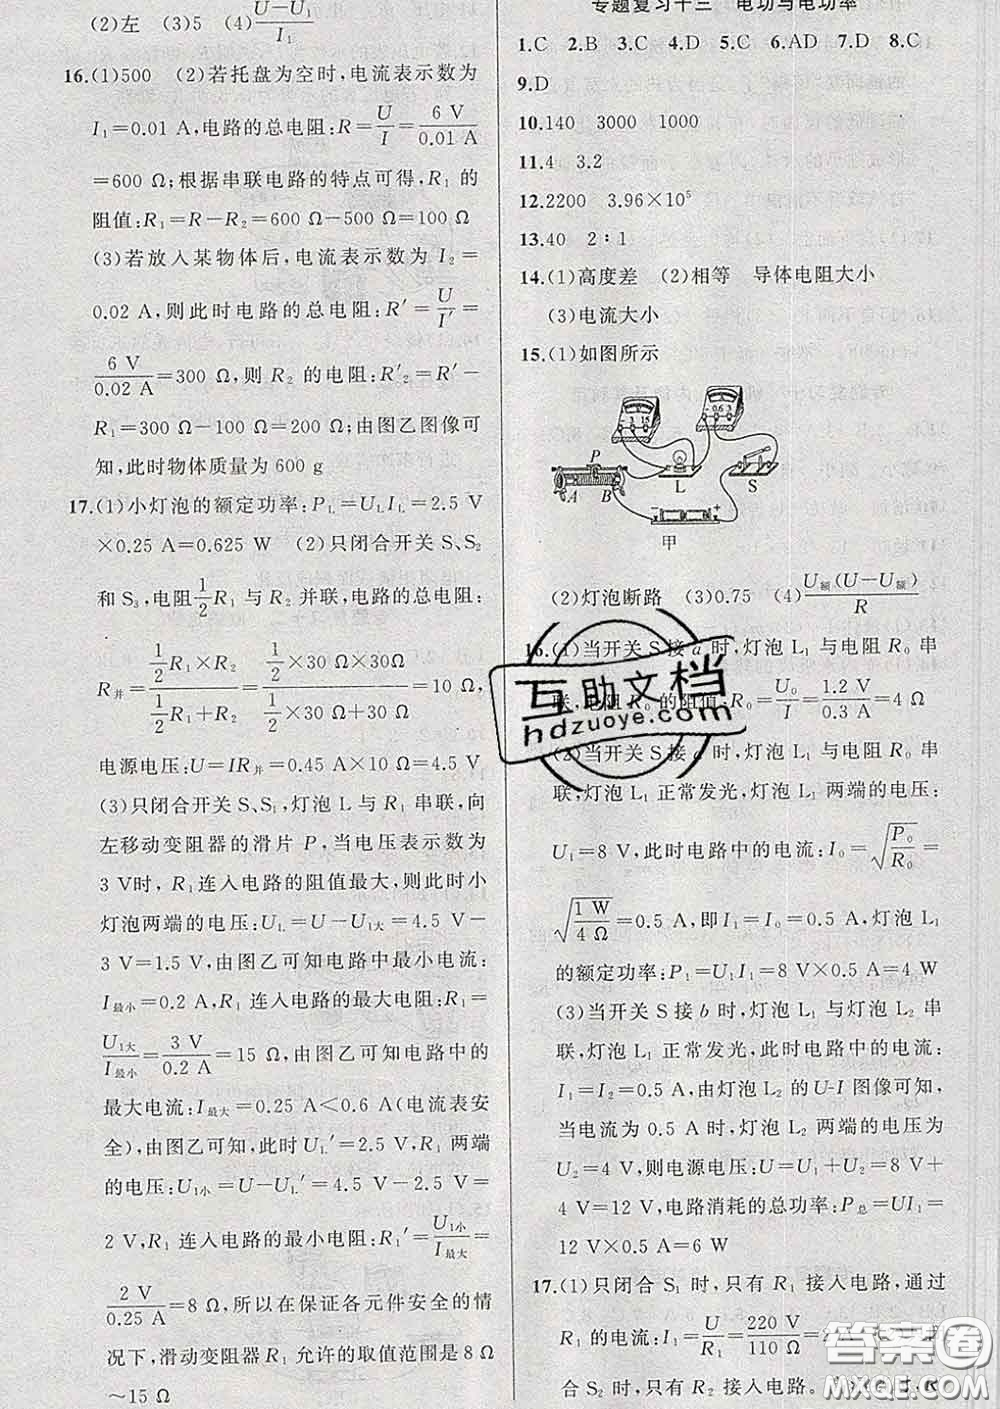 (2)左 (3)5 (4)\frac{U-U_1}{I_1}
16.(1)500 (2)若托盘为空时,电流表示数为
I_1=0.01 A,电路的总电阻:R=\frac{U}{I}=\frac{6 V}{0.01 A}
=600 Ω;根据串联电路的特点可得,R_1 的
阻值:R_1=R-R_2=600 Ω-500 Ω=100 Ω
(3)若放入某物体后,电流表示数为 I_2=
0.02 A,则此时电路的总电阻:R'=\frac{U}{I'}=
\frac{6 V}{0.02 A}=300 Ω,则 R_2 的电阻:R'_2=R'-
R_1=300 Ω-100 Ω=200 Ω;由图乙图像可
知,此时物体质量为 600 g
17.(1)小灯泡的额定功率:P_L=U_LI_L=2.5 V
×0.25 A=0.625 W (2)只闭合开关 S、S_2
和 S_3,电阻\frac{1}{2}R_1 与 R_2 并联,电路的总电阻:
R_并=\frac{\frac{1}{2}R_1×R_2}{\frac{1}{2}R_1+R_2}=\frac{\frac{1}{2}×30 Ω×30Ω}{\frac{1}{2}×30 Ω+30 Ω}=10 Ω,
电源电压:U=IR_并=0.45 A×10 Ω=4.5 V
(3)只闭合开关 S、S_1,灯泡 L 与 R_1 串联,向
左移动变阻器的滑片 P,当电压表示数为
3 V时,R_1连入电路的阻值最大,则此时小
灯泡两端的电压:U_L=U-U_{1大}=4.5 V-
3 V=1.5 V,由图乙可知电路中最小电流:
I_最小=0.2 A,R_1连入电路的最大电阻:R_1=
\frac{U_{1大}}{I_最小}=\frac{3 V}{0.2 A}=15 Ω,由图乙可知电路中的
最大电流:I_最大=0.25 A<0.6 A(电流表安
全),由图乙可知,此时 U_L'=2.5 V,R_1 两端
的电压:U_{1小}=U-U_L'=4.5 V-2.5 V=
2 V,R_1 连入电路的最小电阻:R_1'=\frac{U_{1小}}{I_最大}=
\frac{2 V}{0.25 A}=8 Ω,所以在保证各元件安全的情
况下,滑动变阻器 R_1 允许的取值范围是 8 Ω
~15 Ω
专题复习十三 电功与电功率
1.C 2.B 3.C 4.D 5.C 6.AD 7.D 8.C
9.D
10.140 3000 1000
11.4 3.2
12.2200 3.96×10^5
13.40 2∶1
14.(1)高度差 (2)相等 导体电阻大小
(3)电流大小
15.(1)如图所示
P
A B L S
甲
(2)灯泡断路 (3)0.75 (4)\frac{U_额(U-U_额)}{R}
16.(1)当开关 S 接 a 时,灯泡 L_1 与电阻 R_0 串
联,电阻 R_0 的阻值:R_0=\frac{U_0}{I}=\frac{1.2 V}{0.3 A}=4 Ω
(2)当开关 S 接 a 时,灯泡 L_1 与电阻 R_0 串
联,灯泡 L_1 正常发光,灯泡 L_1 两端的电压:
U_1=8 V,此时电路中的电流:I_0=\sqrt{\frac{P_0}{R_0}}=
\sqrt{\frac{1 W}{4 Ω}}=0.5 A,即 I_1=I_0=0.5 A,灯泡 L_1
的额定功率:P_1=U_1I_1=8 V×0.5 A=4 W
(3)当开关 S 接 b 时,灯泡 L_1 与灯泡 L_2 串
联,灯泡 L_1 正常发光,此时电路中的电流:
I_2=I_1=0.5 A,由灯泡 L_2 的 U-I 图像可知,
当电流为 0.5 A时,灯泡 L_2 两端的电压为
U_2=4 V,则电源电压:U=U_1+U_2=8 V+
4 V=12 V,电路消耗的总功率:P_总=UI_1=
12 V×0.5 A=6 W
17.(1)只闭合 S_1 时,只有 R_1 接入电路,通过
R_1 的电流:I_1=\frac{U}{R_1}=\frac{220 V}{110 Ω}=2
合 S_2 时,只有 R_2 接入电路。
互助文档
hdzuoye.com
答案圈
MXQE.COM